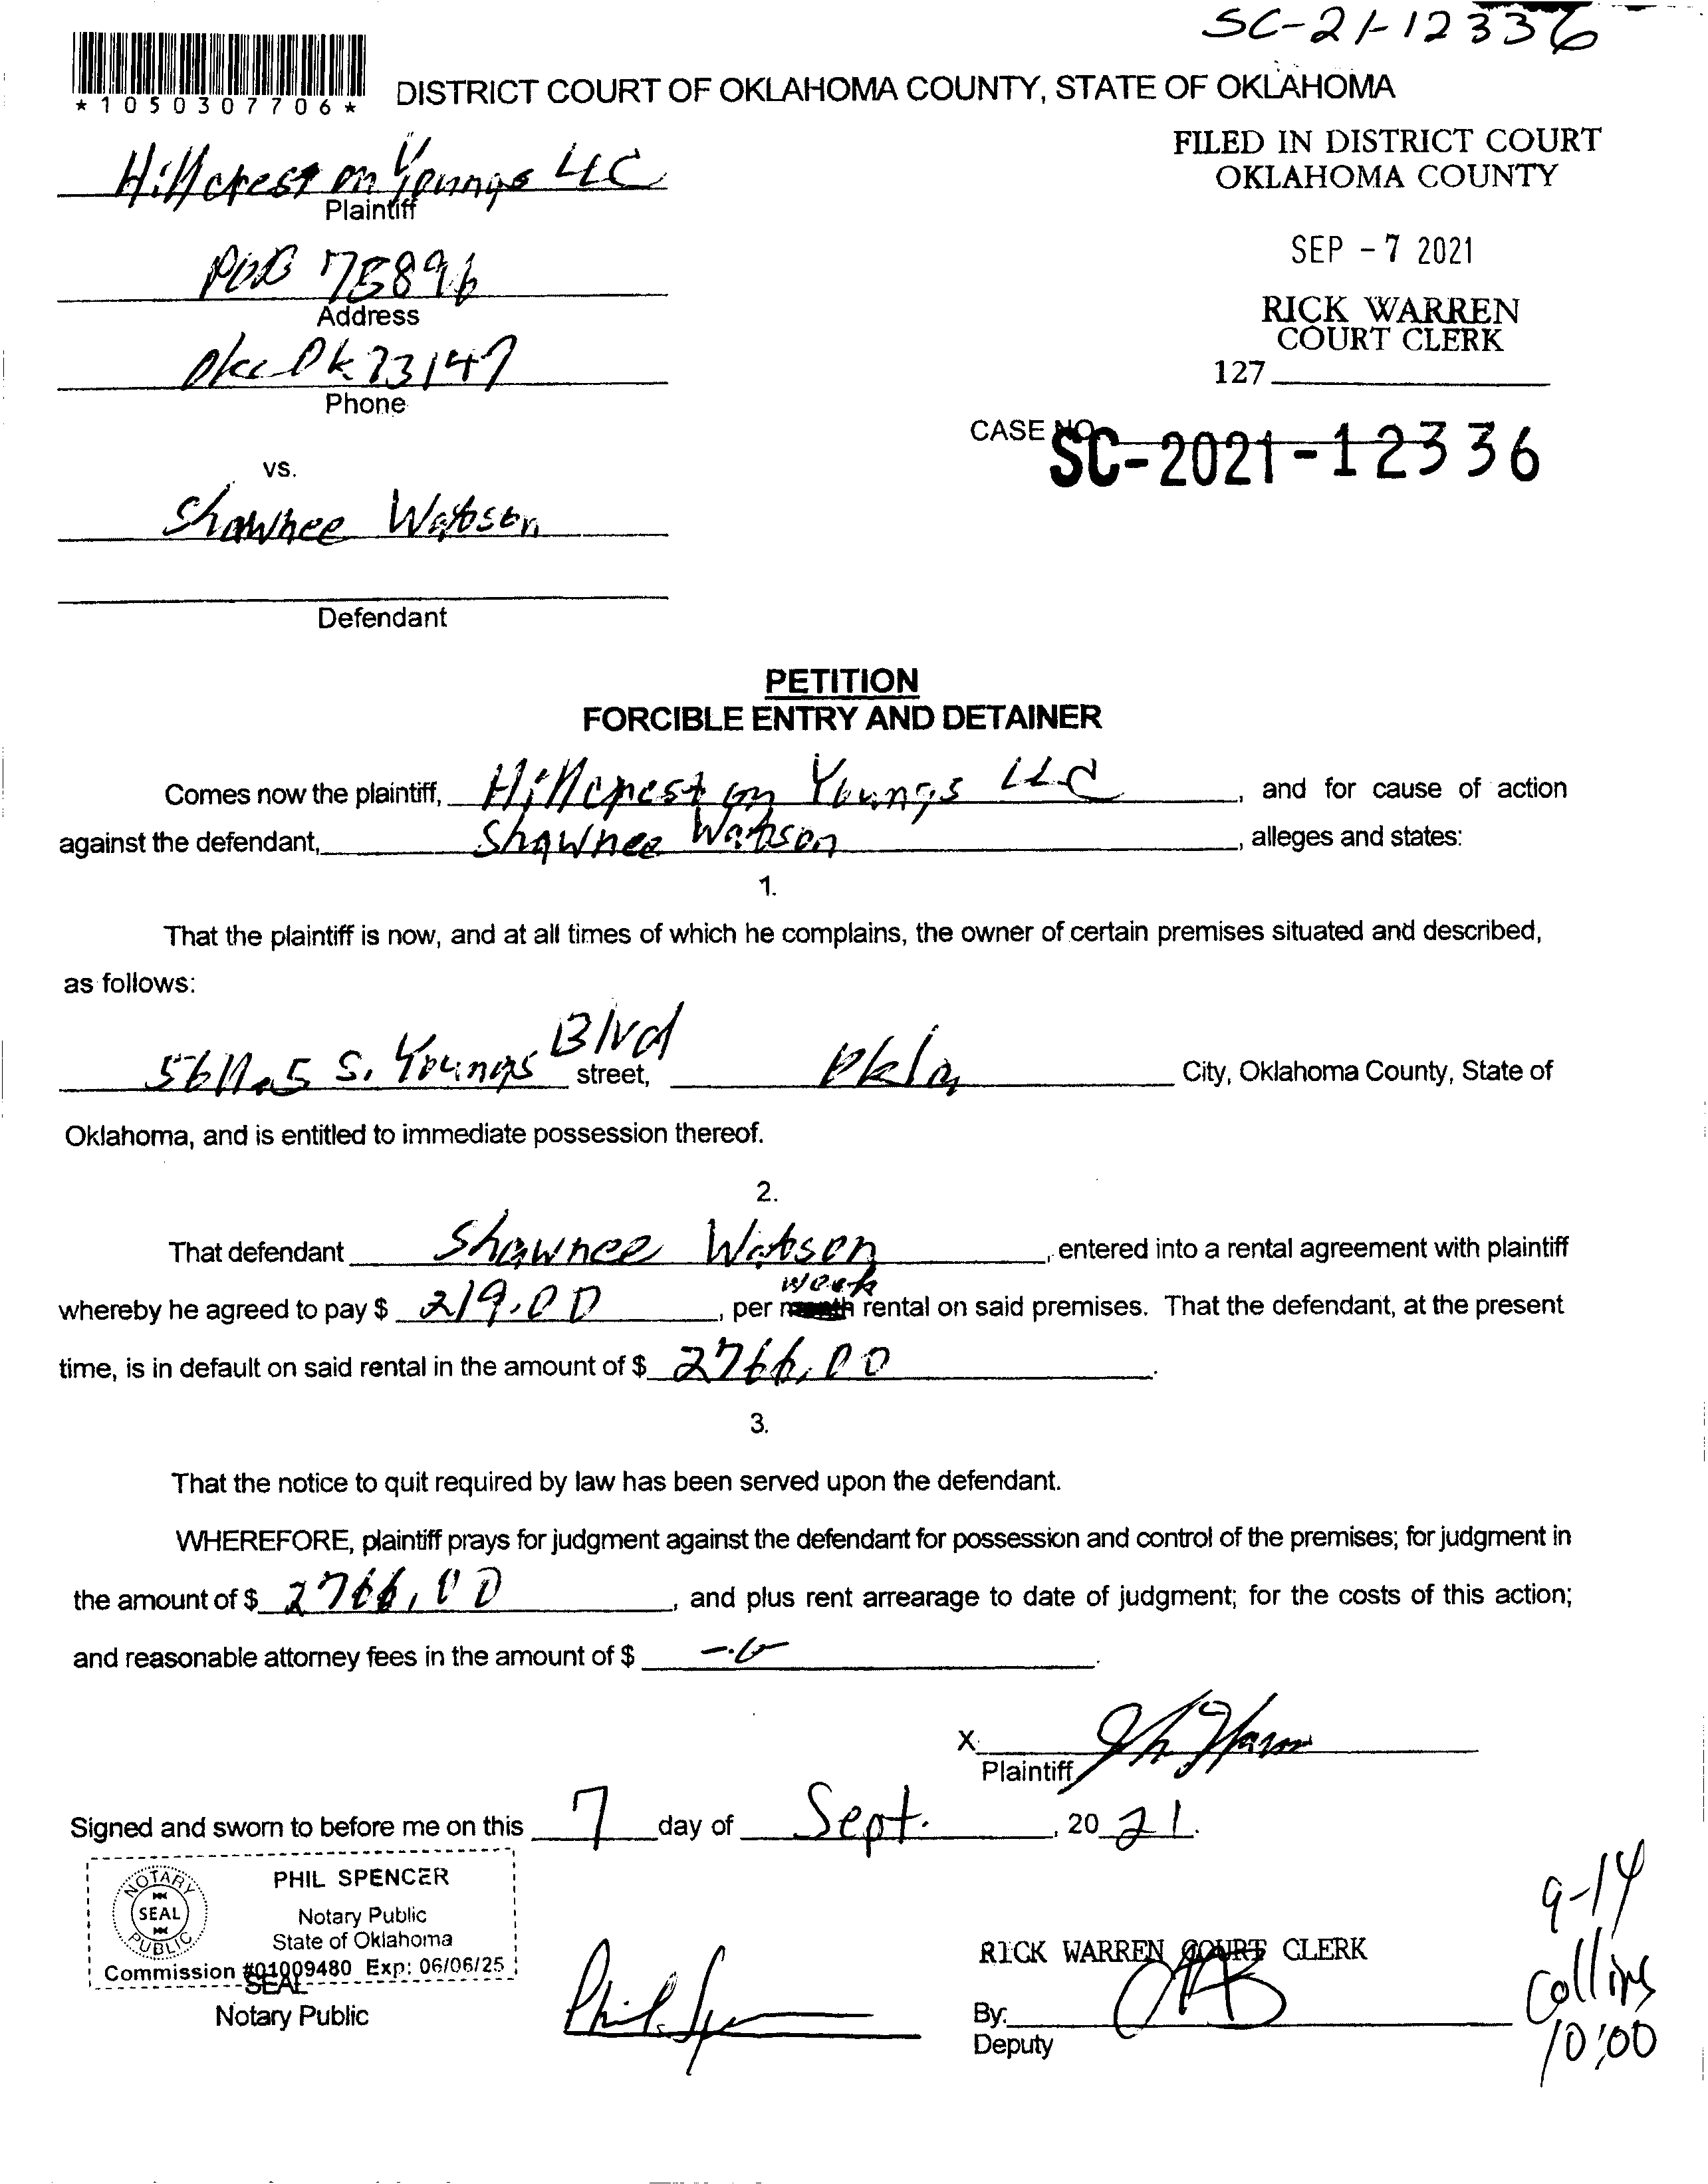 SC-21-12336
*1050307706*
DISTRICT COURT OF OKLAHOMA COUNTY, STATE OF OKLAHOMA
FILED IN DISTRICT COURT
OKLAHOMA COUNTY
Hillcrest on Youngs LLC
Plaintiff
SEP -7 2021
POB 75896
Address
RICK WARREN
COURT CLERK
127
Okc Ok 73147
Phone
CASE NO.
SC-2021-12336
vs.
Shawnee Watson
Defendant
PETITION
FORCIBLE ENTRY AND DETAINER
Comes now the plaintiff, Hillcrest on Youngs LLC, and for cause of action
against the defendant, Shawnee Watson, alleges and states:
1.
That the plaintiff is now, and at all times of which he complains, the owner of certain premises situated and described,
as follows:
S. Youngs Blvd street, Okla City, Oklahoma County, State of
Oklahoma, and is entitled to immediate possession thereof.
2.
That defendant Shawnee Watson, entered into a rental agreement with plaintiff
week
whereby he agreed to pay $ 219.00, per month rental on said premises. That the defendant, at the present
time, is in default on said rental in the amount of $ 2766.00.
3.
That the notice to quit required by law has been served upon the defendant.
WHEREFORE, plaintiff prays for judgment against the defendant for possession and control of the premises; for judgment in
the amount of $ 2766.00, and plus rent arrearage to date of judgment; for the costs of this action;
and reasonable attorney fees in the amount of $ -0-.
X
Plaintiff
Signed and sworn to before me on this 7 day of Sept., 2021.
PHIL SPENCER
Notary Public
State of Oklahoma
Commission #01009480 Exp: 06/06/25
NOTARY PUBLIC
SEAL
SEAL
Notary Public
Phil Spencer
RICK WARREN COURT CLERK
By:
Deputy
9-14
Collins
10:00